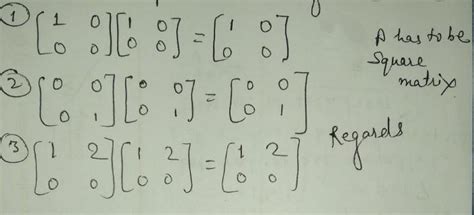 ① [1 0 0 0] [1 0 0 0] = [1 0 0 0]
A has to be
Square
matrix
② [0 0 0 1] [0 0 0 1] = [0 0 0 1]
③ [1 2 0 0] [1 2 0 0] = [1 2 0 0]
Regards